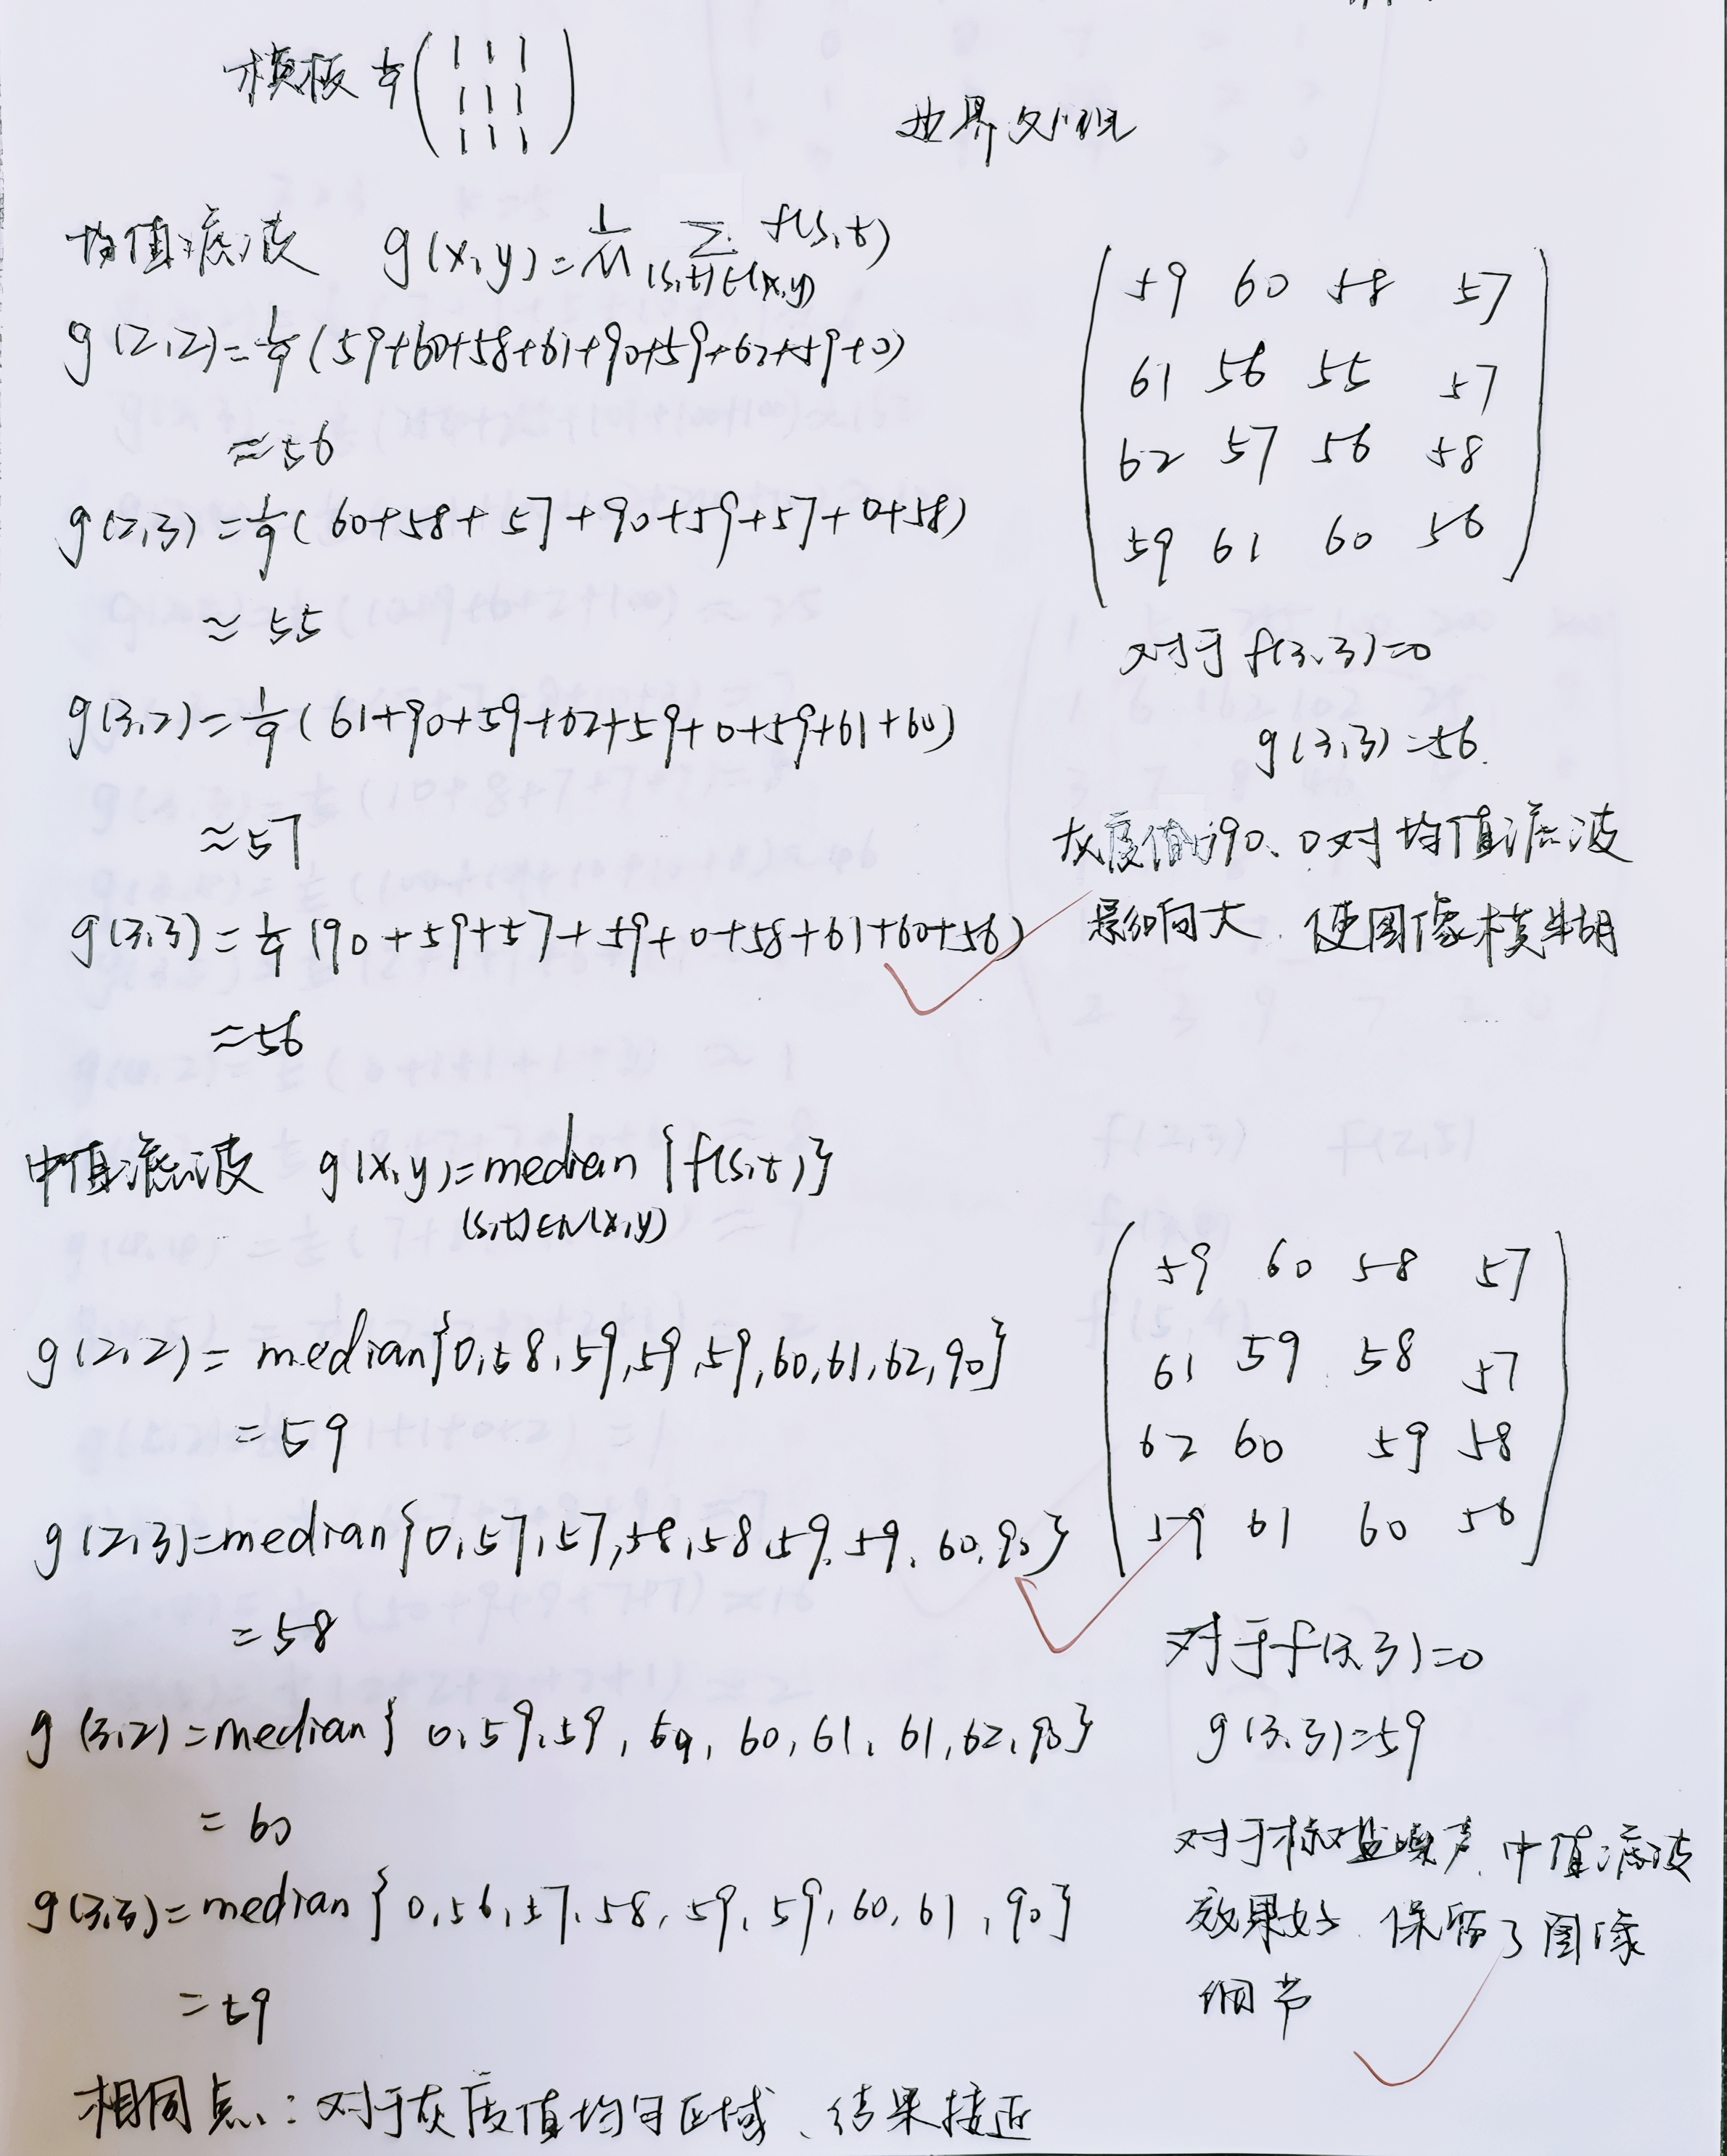 模板 1/9 (1 1 1
1 1 1
1 1 1)
均值滤波 g(x,y)=1/M Σ f(s,t)
(s,t)∈(x,y)
g(2,2)=1/9(59+60+58+61+90+59+62+59+0)
≈56
g(2,3)=1/9(60+58+57+90+59+57+0+58)
≈55
g(3,2)=1/9(61+90+59+62+59+0+59+61+60)
≈57
g(3,3)=1/9(90+59+57+59+0+58+61+60+56)
≈56
59 60 58 57
61 56 55 57
62 57 56 58
59 61 60 56
对于f(3,3)=0
g(3,3)=56.
灰度值为90、0对均值滤波
影响大,使图像模糊
中值滤波 g(x,y)=median{f(s,t)}
(s,t)∈N(x,y)
g(2,2)=median{0,58,59,59,59,60,61,62,90}
=59
g(2,3)=median{0,57,57,58,58,59,59,60,90}
=58
g(3,2)=median{0,59,59,60,61,61,62,90}
=60
g(3,3)=median{0,56,57,58,59,59,60,61,90}
=59
59 60 58 57
61 59 58 57
62 60 59 58
59 61 60 56
对于f(3,3)=0
g(3,3)=59
对于椒盐噪声,中值滤波
效果好,保留了图像
细节
相同点:对于灰度值均匀区域、结果接近